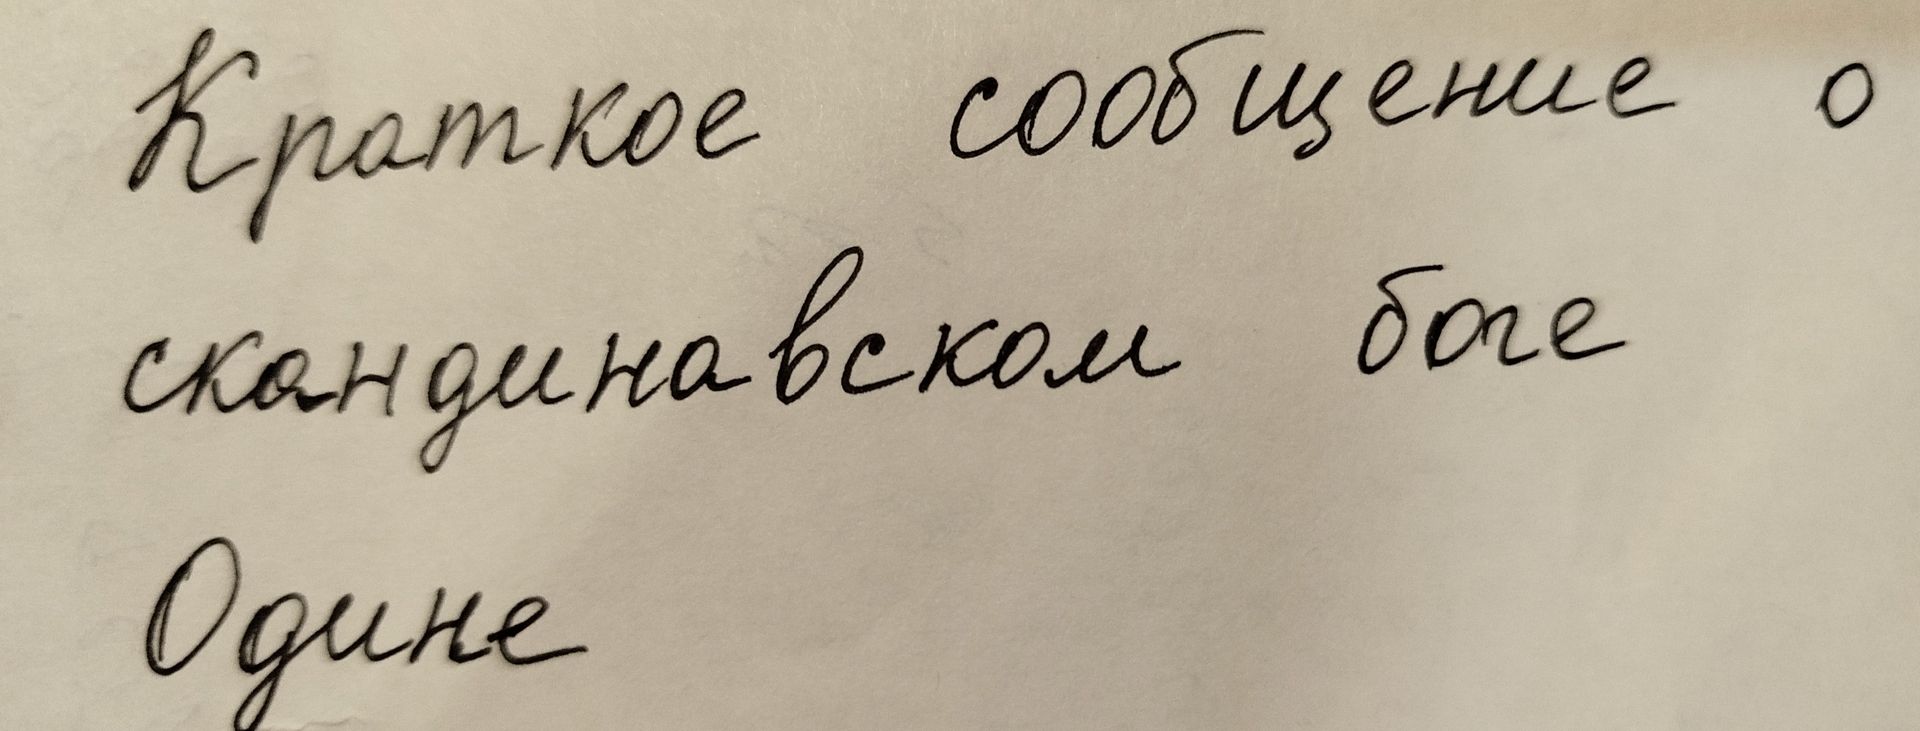 Краткое сообщение о
скандинавском боге
Одине